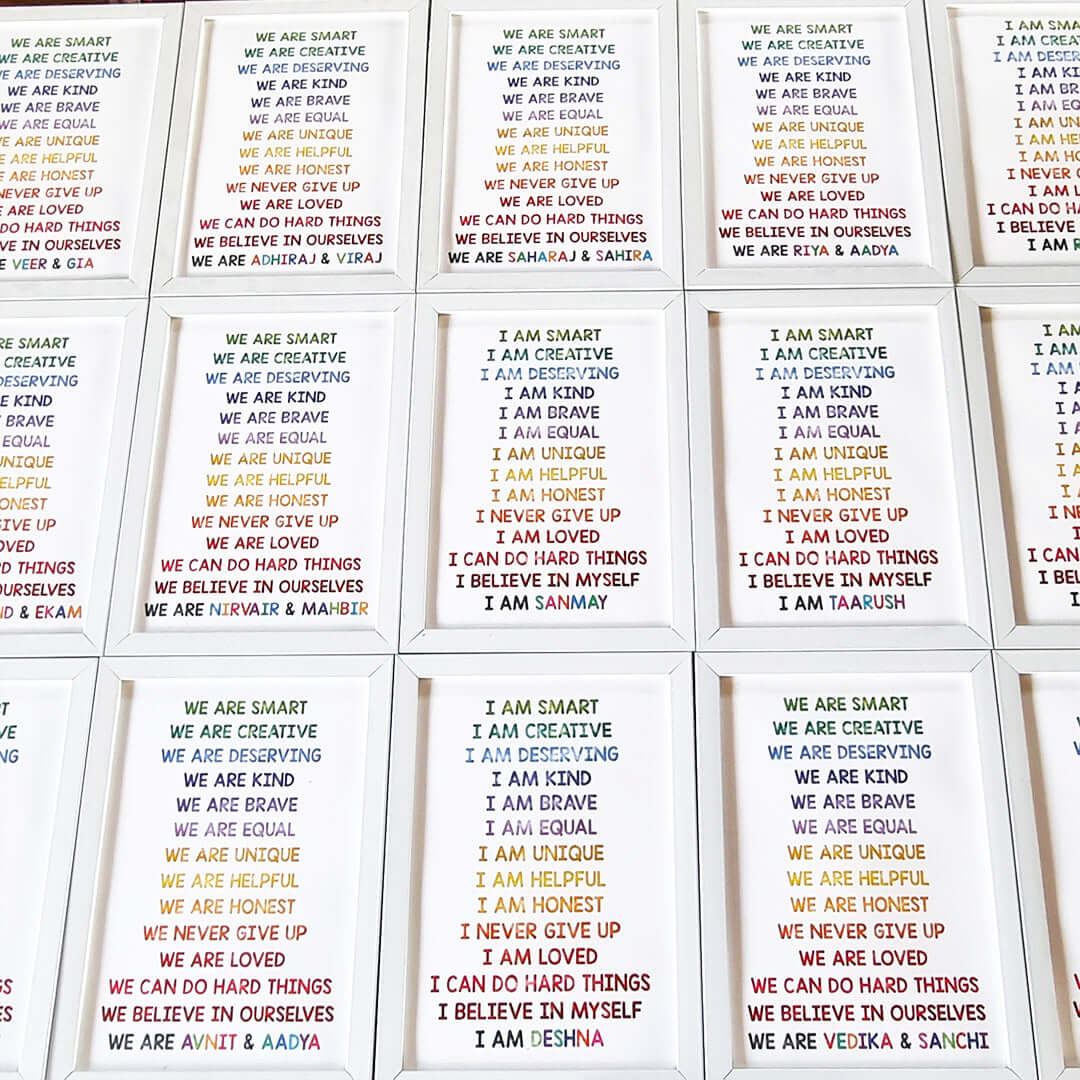 WE ARE SMART
ARE CREATIVE
ARE DESERVING
WE ARE KIND
WE ARE BRAVE
WE ARE EQUAL
ARE UNIQUE
ARE HELPFUL
ARE HONEST
NEVER GIVE UP
ARE LOVED
CAN DO HARD THINGS
BELIEVE IN OURSELVES
VEER & GIA
WE ARE SMART
WE ARE CREATIVE
WE ARE DESERVING
WE ARE KIND
WE ARE BRAVE
WE ARE EQUAL
WE ARE UNIQUE
WE ARE HELPFUL
WE ARE HONEST
WE NEVER GIVE UP
WE ARE LOVED
WE CAN DO HARD THINGS
WE BELIEVE IN OURSELVES
WE ARE ADHIRAJ & VIRAJ
WE ARE SMART
WE ARE CREATIVE
WE ARE DESERVING
WE ARE KIND
WE ARE BRAVE
WE ARE EQUAL
WE ARE UNIQUE
WE ARE HELPFUL
WE ARE HONEST
WE NEVER GIVE UP
WE ARE LOVED
WE CAN DO HARD THINGS
WE BELIEVE IN OURSELVES
WE ARE SAHARAJ & SAHIRA
WE ARE SMART
WE ARE CREATIVE
WE ARE DESERVING
WE ARE KIND
WE ARE BRAVE
WE ARE EQUAL
WE ARE UNIQUE
WE ARE HELPFUL
WE ARE HONEST
WE NEVER GIVE UP
WE ARE LOVED
WE CAN DO HARD THINGS
WE BELIEVE IN OURSELVES
WE ARE RIYA & AADYA
I AM
I AM
I AM
I AM
I AM
I AM
I AM
I AM
I AM
I NEVER
I AM
I CAN DO
I BELIEVE
I AM
SMART
CREATIVE
KIND
BRAVE
EQUAL
GIVE UP
THINGS
OURSELVES
& EKAM
WE ARE SMART
WE ARE CREATIVE
WE ARE DESERVING
WE ARE KIND
WE ARE BRAVE
WE ARE EQUAL
WE ARE UNIQUE
WE ARE HELPFUL
WE ARE HONEST
WE NEVER GIVE UP
WE ARE LOVED
WE CAN DO HARD THINGS
WE BELIEVE IN OURSELVES
WE ARE NIRVAIR & MAHBIR
I AM SMART
I AM CREATIVE
I AM DESERVING
I AM KIND
I AM BRAVE
I AM EQUAL
I AM UNIQUE
I AM HELPFUL
I AM HONEST
I NEVER GIVE UP
I AM LOVED
I CAN DO HARD THINGS
I BELIEVE IN MYSELF
I AM SANMAY
I AM SMART
I AM CREATIVE
I AM DESERVING
I AM KIND
I AM BRAVE
I AM EQUAL
I AM UNIQUE
I AM HELPFUL
I AM HONEST
I NEVER GIVE UP
I AM LOVED
I CAN DO HARD THINGS
I BELIEVE IN MYSELF
I AM TAARUSH
I AM
I AM
I AM
I
I
I
I
I
I
I
I
I CAN
I
I
WE ARE SMART
WE ARE CREATIVE
WE ARE DESERVING
WE ARE KIND
WE ARE BRAVE
WE ARE EQUAL
WE ARE UNIQUE
WE ARE HELPFUL
WE ARE HONEST
WE NEVER GIVE UP
WE ARE LOVED
WE CAN DO HARD THINGS
WE BELIEVE IN OURSELVES
WE ARE AVNIT & AADYA
I AM SMART
I AM CREATIVE
I AM DESERVING
I AM KIND
I AM BRAVE
I AM EQUAL
I AM UNIQUE
I AM HELPFUL
I AM HONEST
I NEVER GIVE UP
I AM LOVED
I CAN DO HARD THINGS
I BELIEVE IN MYSELF
I AM DESHNA
WE ARE SMART
WE ARE CREATIVE
WE ARE DESERVING
WE ARE KIND
WE ARE BRAVE
WE ARE EQUAL
WE ARE UNIQUE
WE ARE HELPFUL
WE ARE HONEST
WE NEVER GIVE UP
WE ARE LOVED
WE CAN DO HARD THINGS
WE BELIEVE IN OURSELVES
WE ARE VEDIKA & SANCHI